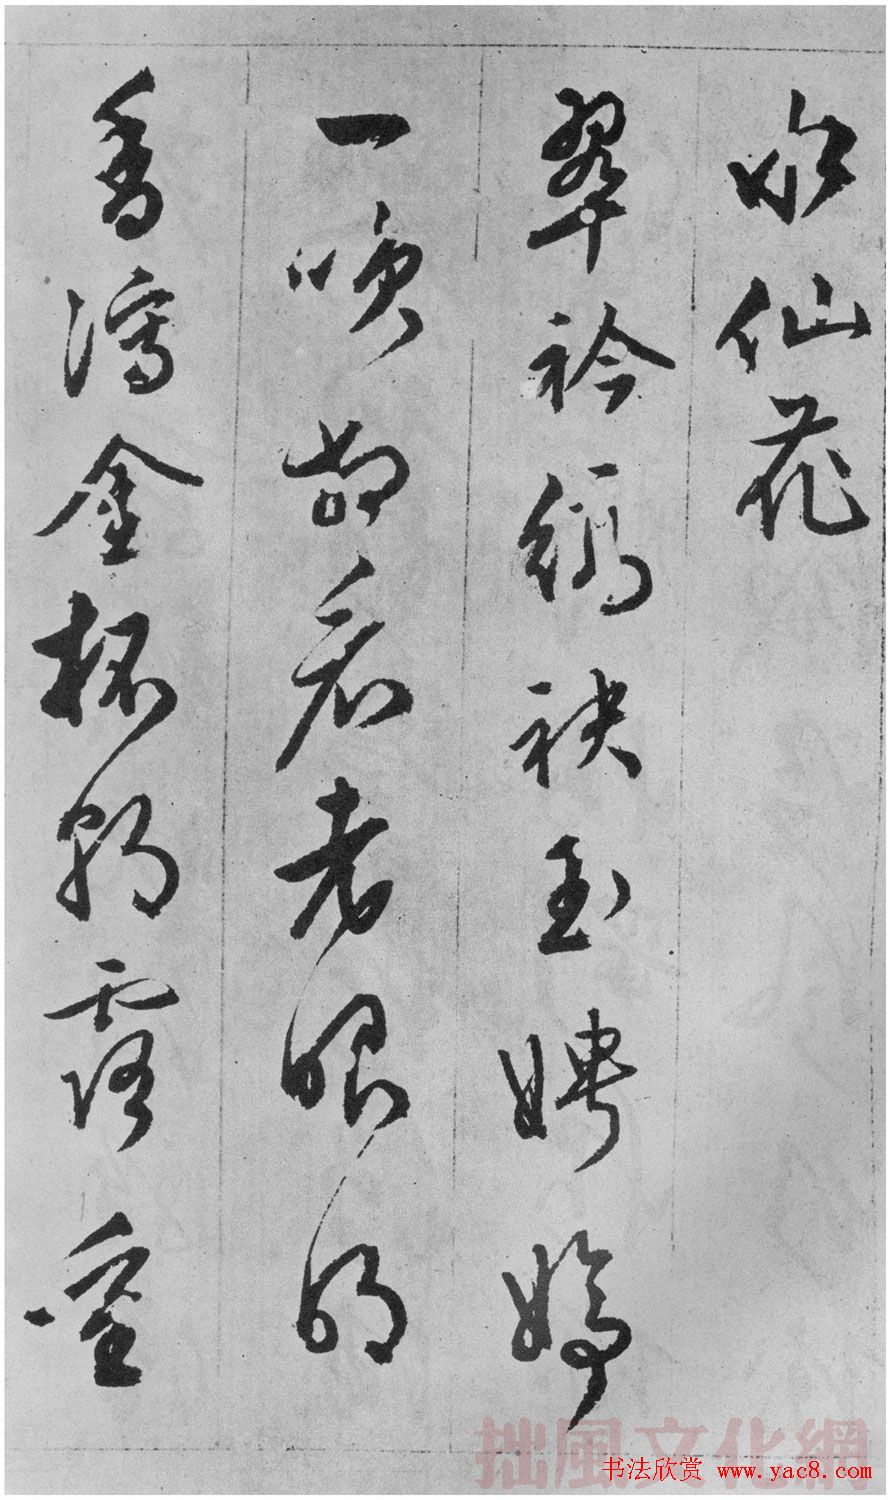 水仙花
翠衿縞袂玉娉婷
一笑相看老眼明
香瀉金杯朝露重
拙風文化網
书法欣赏 www.yac8.com